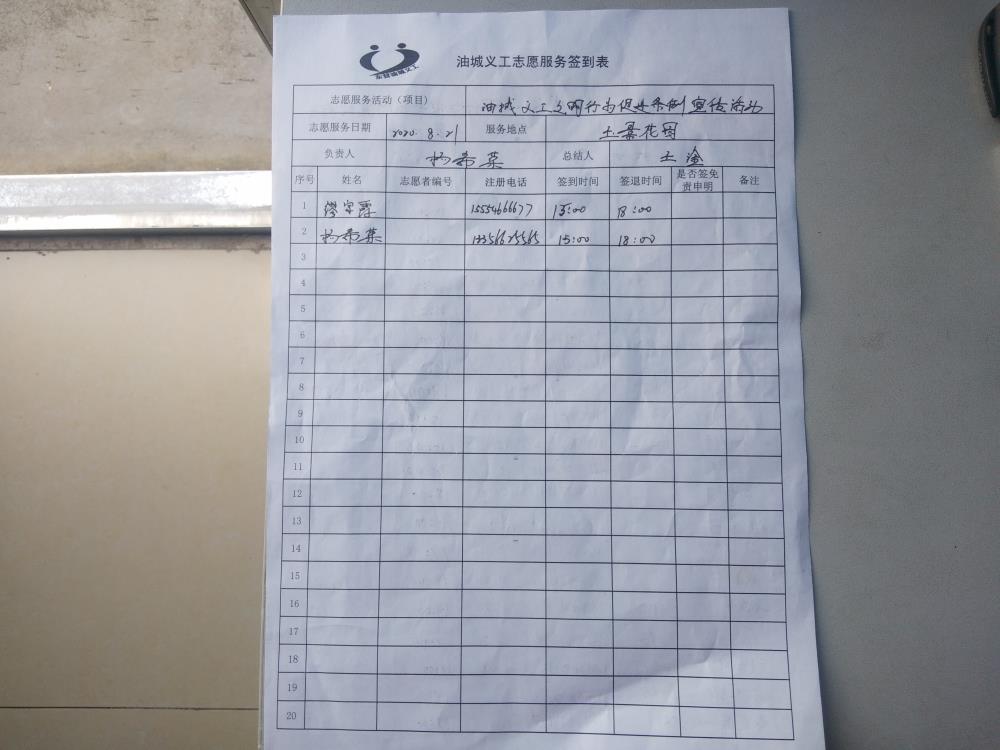 东营油城义工
油城义工志愿服务签到表
志愿服务活动（项目） 油城义工文明行为促进条例宣传活动
志愿服务日期 2020.8.21 服务地点 花园
负责人 杨希菜 总结人
序号 姓名 志愿者编号 注册电话 签到时间 签退时间 是否签免责申明 备注
1 15554666677 15:00 18:00
2 杨希菜 15:00 18:00
3
4
5
6
7
8
9
10
11
12
13
14
15
16
17
18
19
20